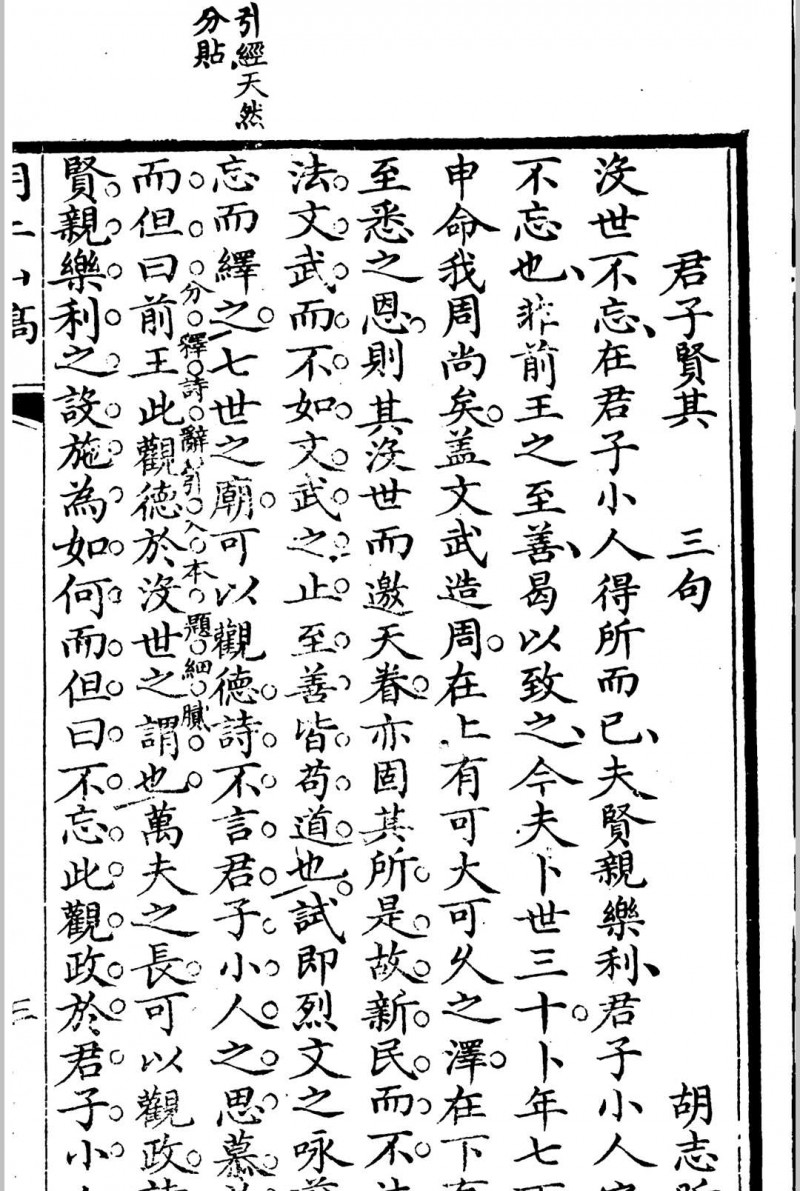 引經天然
分貼
君子賢其　三句　胡志
沒世不忘在君子小人得所而已夫賢親樂利君子小人
不忘也非前王之至善曷以致之今夫卜世三十卜年七
申命我周尚矣蓋文武造周在上有可大可久之澤在下
至悉之恩則其沒世而邀天眷亦固其所是故新民而不
法文武而不如文武之止至善皆苟道也試即烈文之咏
忘而繹之七世之廟可以觀德詩不言君子小人之思慕
分釋詩辭引入本題細膩
而但曰前王此觀德於沒世之謂也萬夫之長可以觀政
賢親樂利之設施為如何而但曰不忘此觀政於君子小
三